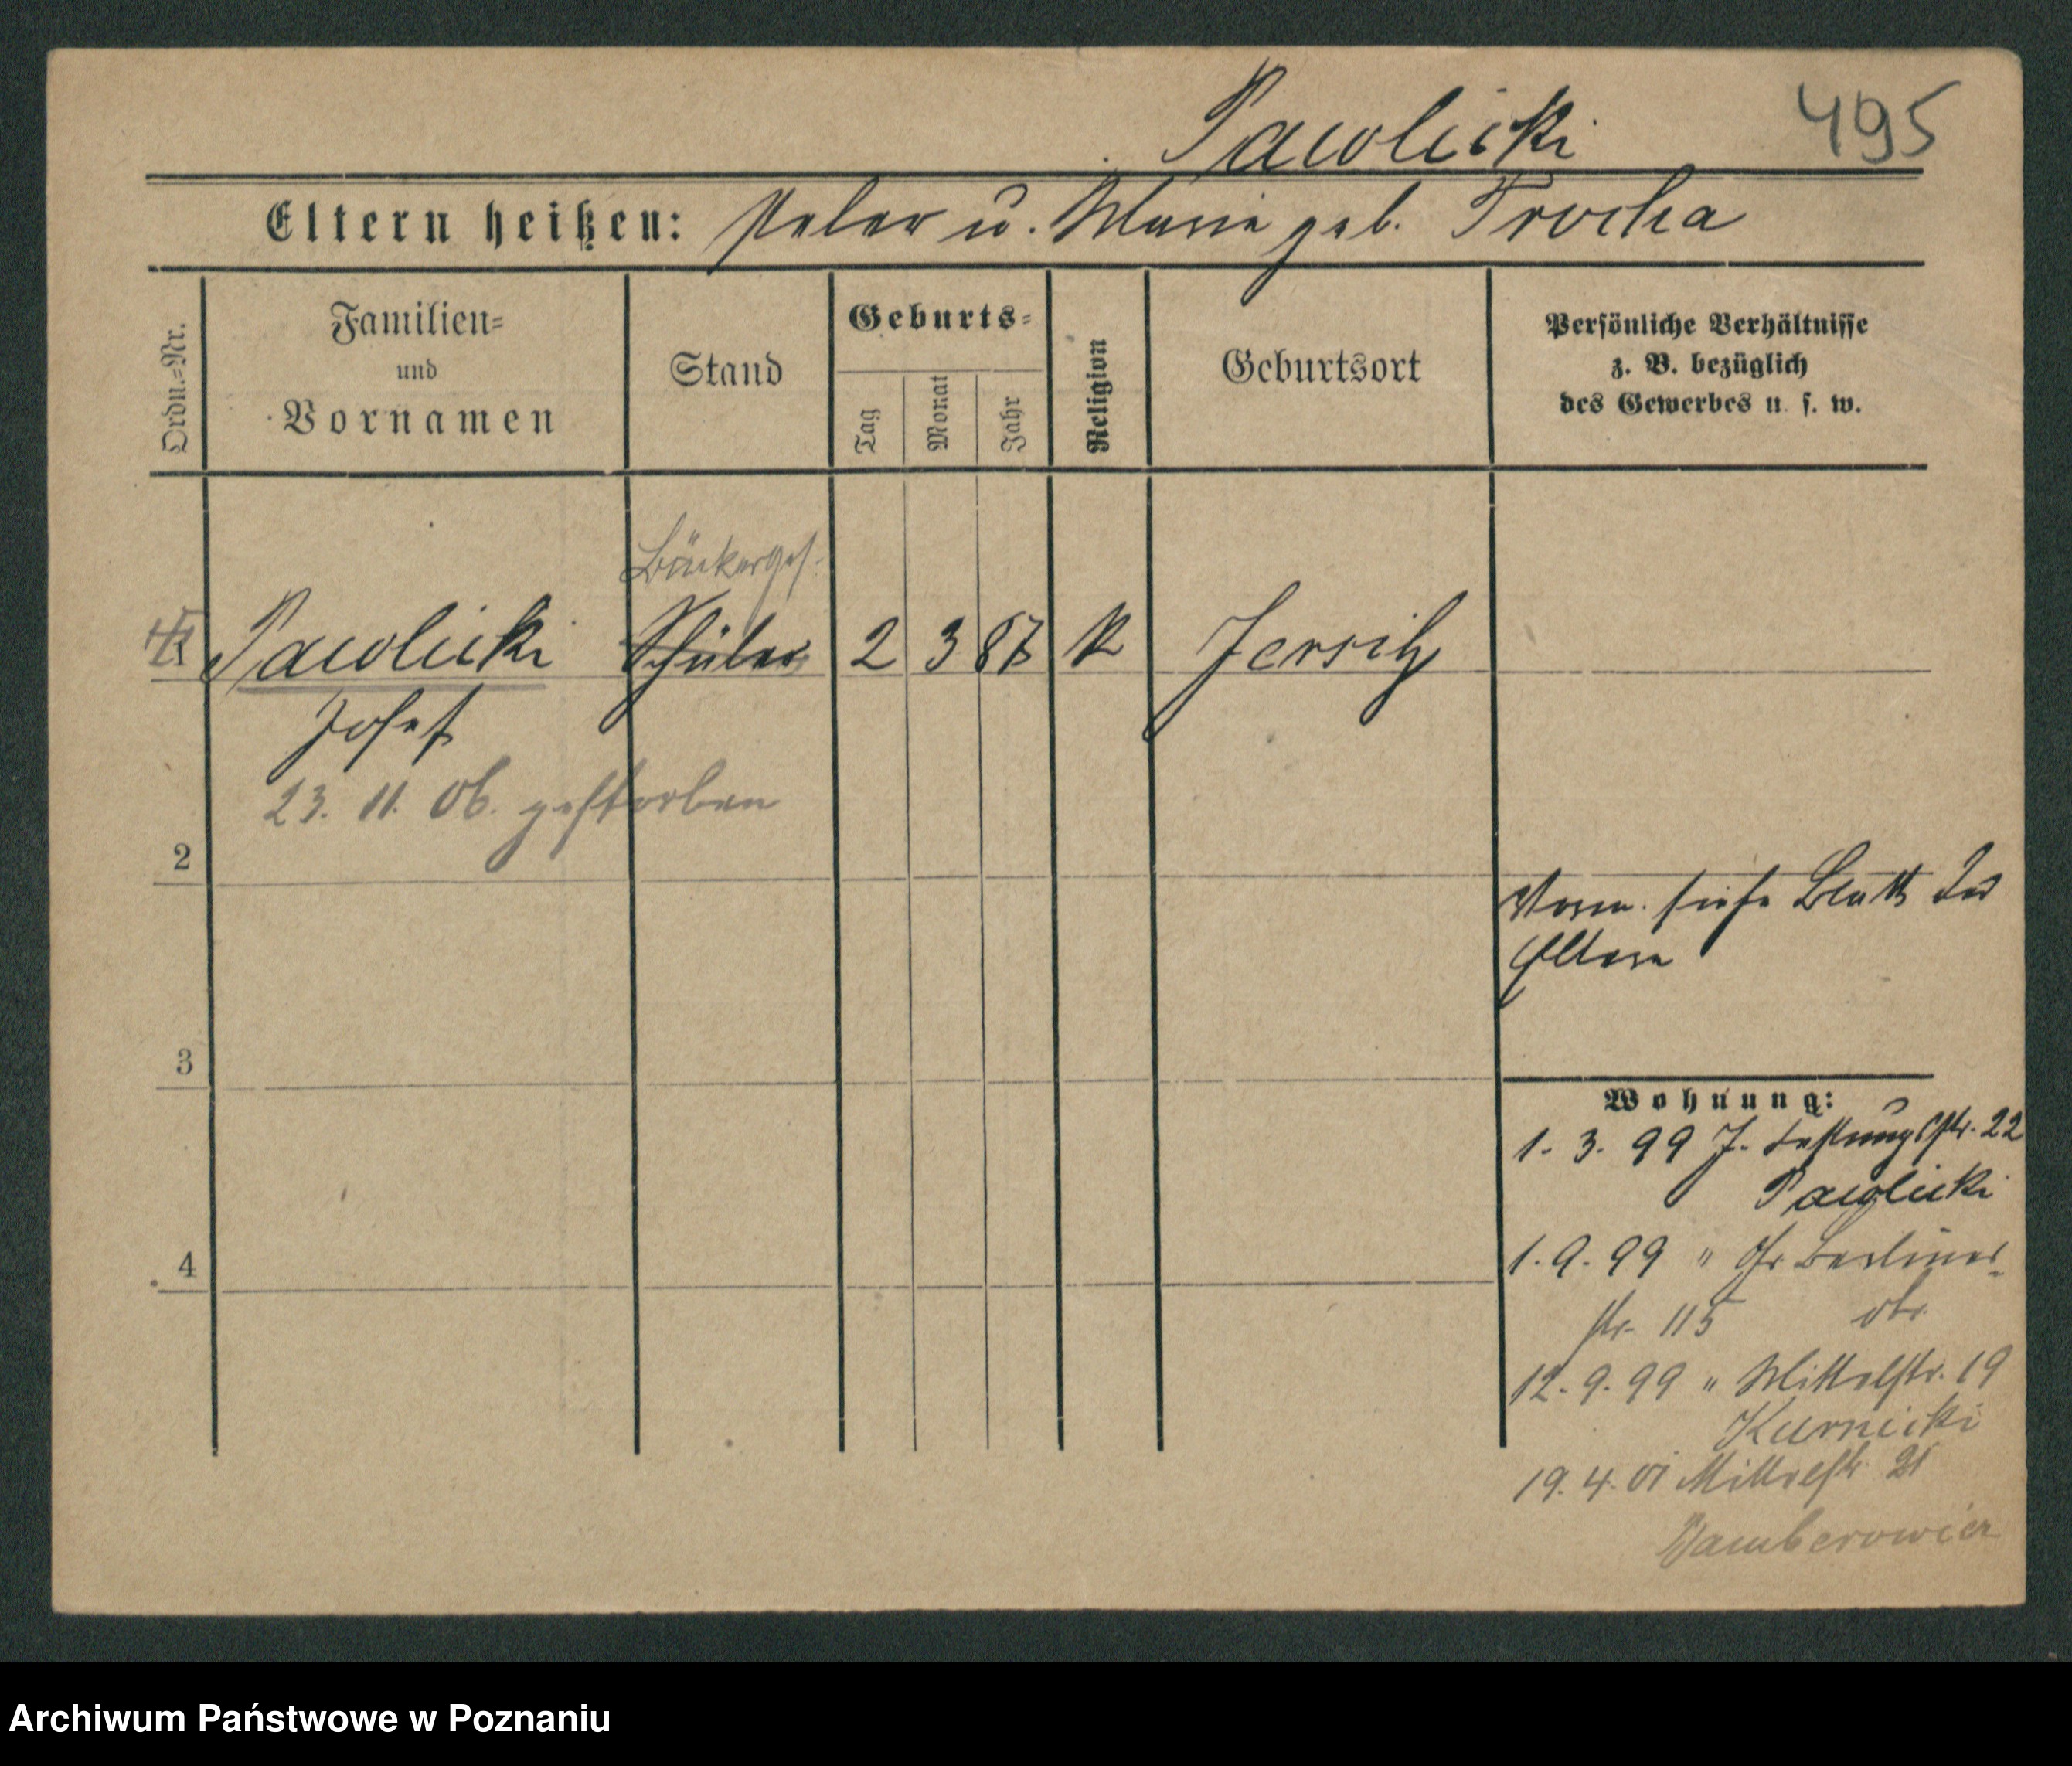 Pawlicki
495
Eltern heißen: Peter u. Marie geb. Trocha
Ordn.=Nr.
Familien=
und
Vornamen
Stand
Geburts=
Tag
Monat
Jahr
Religion
Geburtsort
Persönliche Verhältnisse
z. B. bezüglich
des Gewerbes u. s. w.
Bäckerges.
1 Pawlicki Schüler 2 3 87 K Jersitz
Josef
23. 11. 06. gestorben
2
Vorm. siehe Blatt der
Eltern
3
Wohnung:
1. 3. 99 J. Festungsstr. 22
Pawlicki
1. 9. 99 " Gr. Berliner-
str. 115
4
12. 9. 99 " Mittelstr. 19
Kurnicki
19. 4. 01 Mittelstr. 21